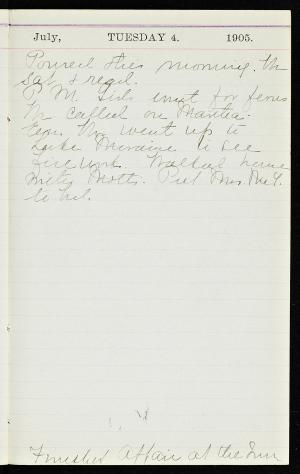 July, TUESDAY 4. 1905.
Poured this morning. We
sat & read.
P. M. Girls went for ferns
We called on Martha.
We went up to
Lake to see
fire works. Walked home
with Motts. Put Mrs. McG.
to bed.
Finished Affair at the Inn